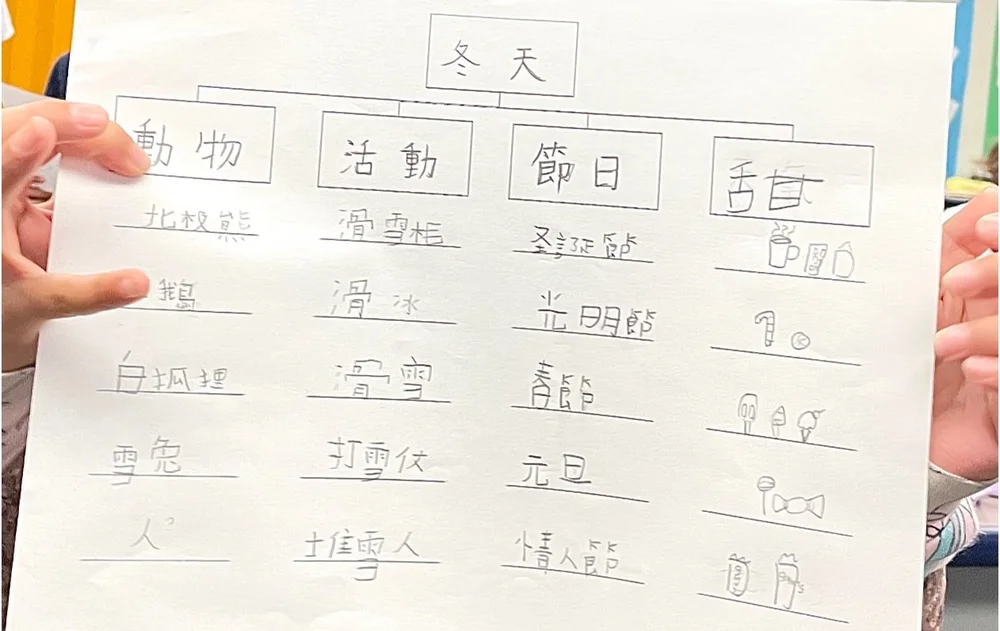 冬天
動物
北极熊
鵝
白狐狸
雪兔
人?
活動
滑雪
滑冰
滑雪
打雪仗
堆雪人
節日
圣誕節
光明節
春節
元旦
情人節